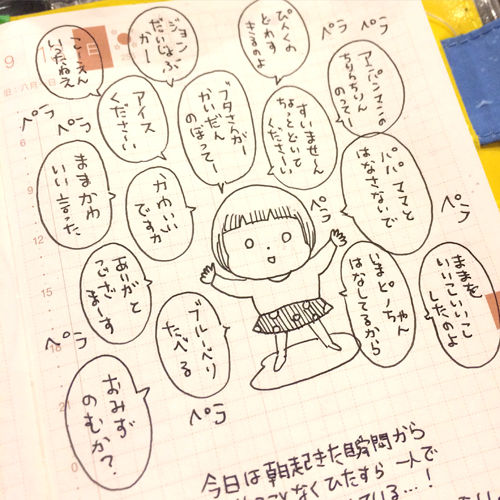 9
日
旧:八月
こうえん
いったねえ
ジョン
だいじょぶ
かー
ぴんくの
どれす
きるのよ
ペラ
ペラ
アンパンマンの
ちりんちりん
のってー
ペラ
ペラ
アイス
くださーい
ブタさんがー
かいだん
のぼってー
すいません
ちょっとどいて
くださーい
パパ ママと
はなさないで
9
ままかわ
いい言った
かわいい
ですか
ペラ
ペラ
12
あいがと
ございまーす
いまピノちゃん
はなしてるから
ままを
いいこいいこ
したのよ
ペラ
ブルーベリ
たべる
ペラ
21
おみず
のむか?
0
今日は朝起きた瞬間から
ことなくひたすら一人で
ている…!